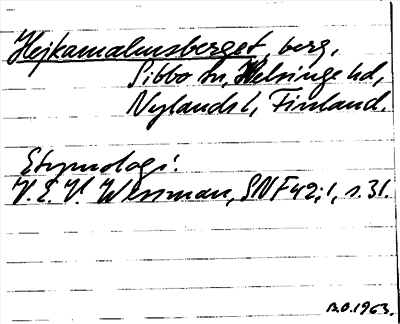 Hejkamalmsberget, berg,
Sibbo sn, Helsinge hd,
Nylands l, Finland.
Etymologi:
V. E. V. Wessman, SNF 42;1, s. 31.
B.O.1963.